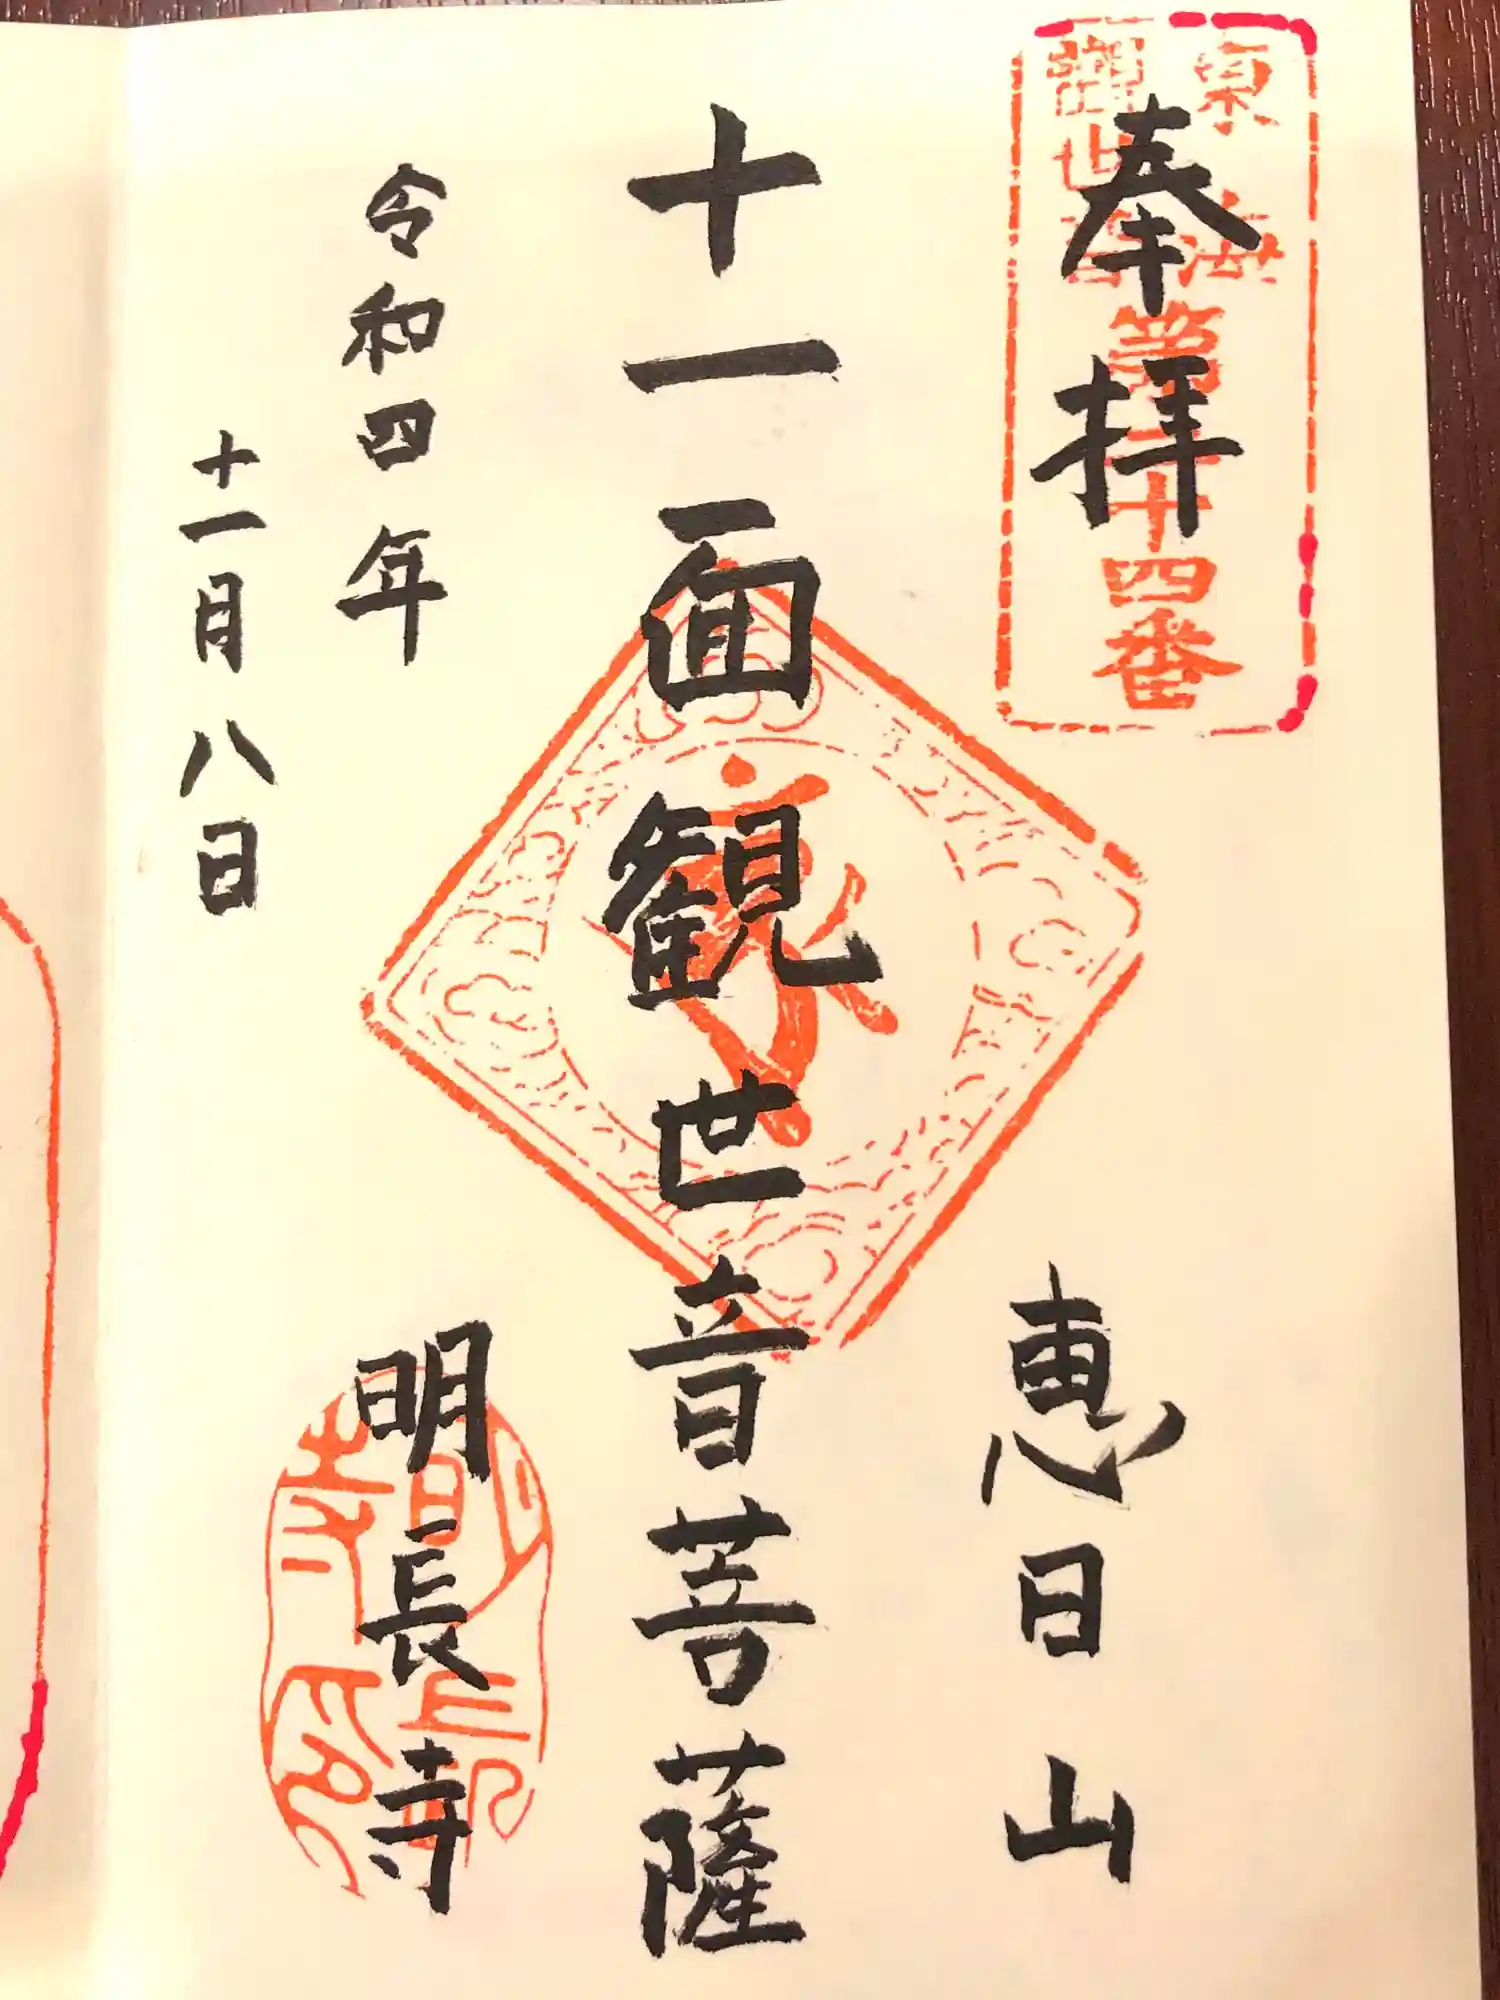 奉拝
東海
観世音
第二十四番
恵日山
十一面観世音菩薩
令和四年
十一月八日
明長寺